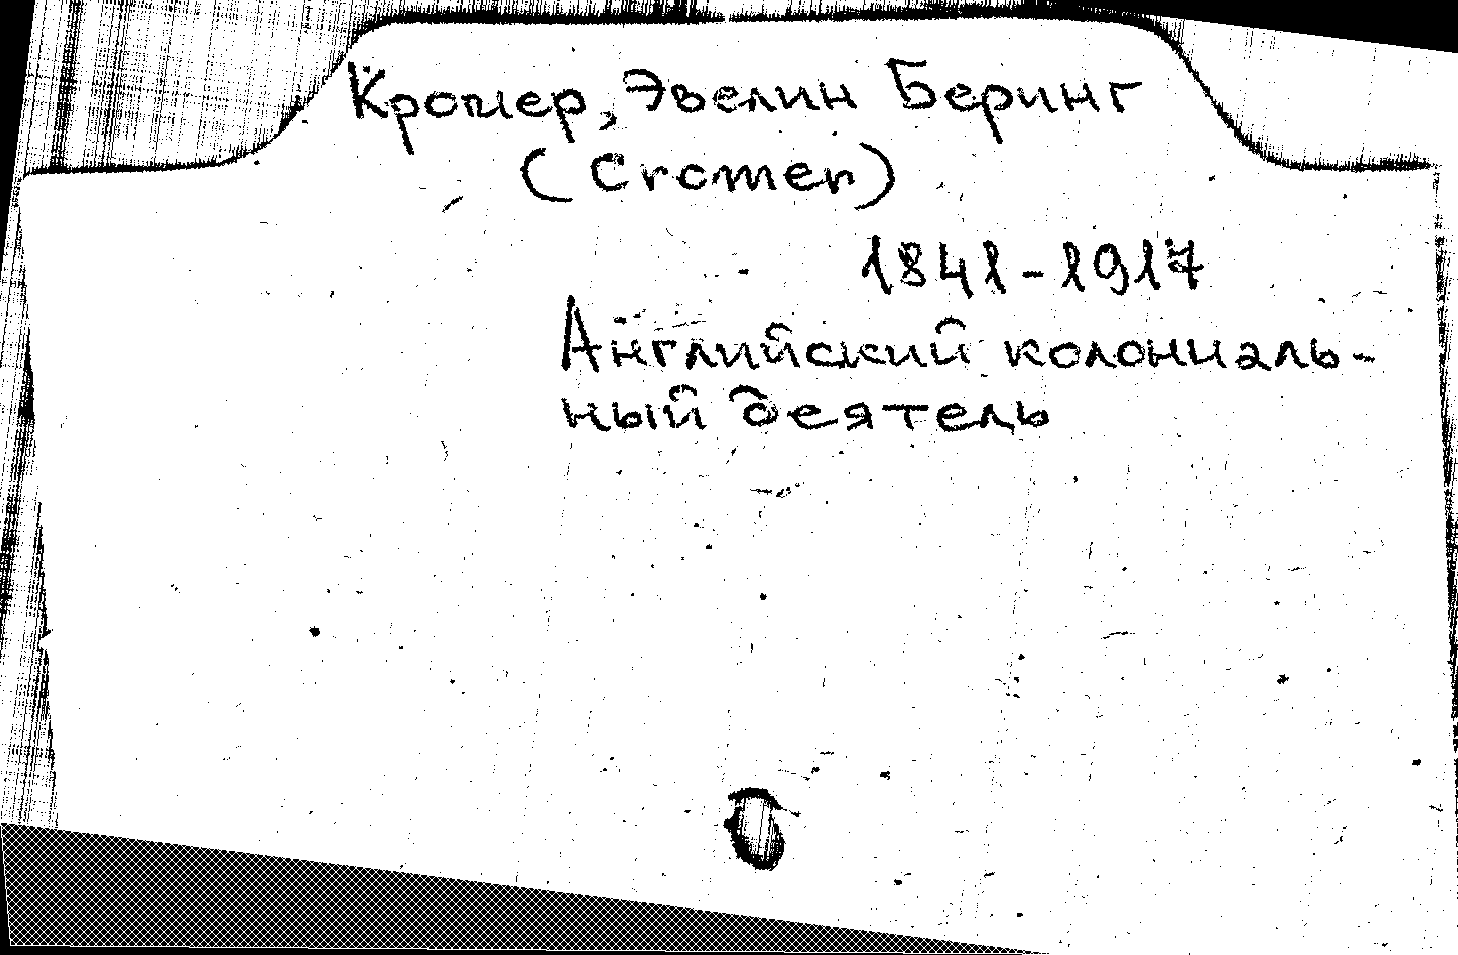 Кромер, Эвелин Беринг
(Cromer)
1841-1917
Английский колониаль-
ный деятель